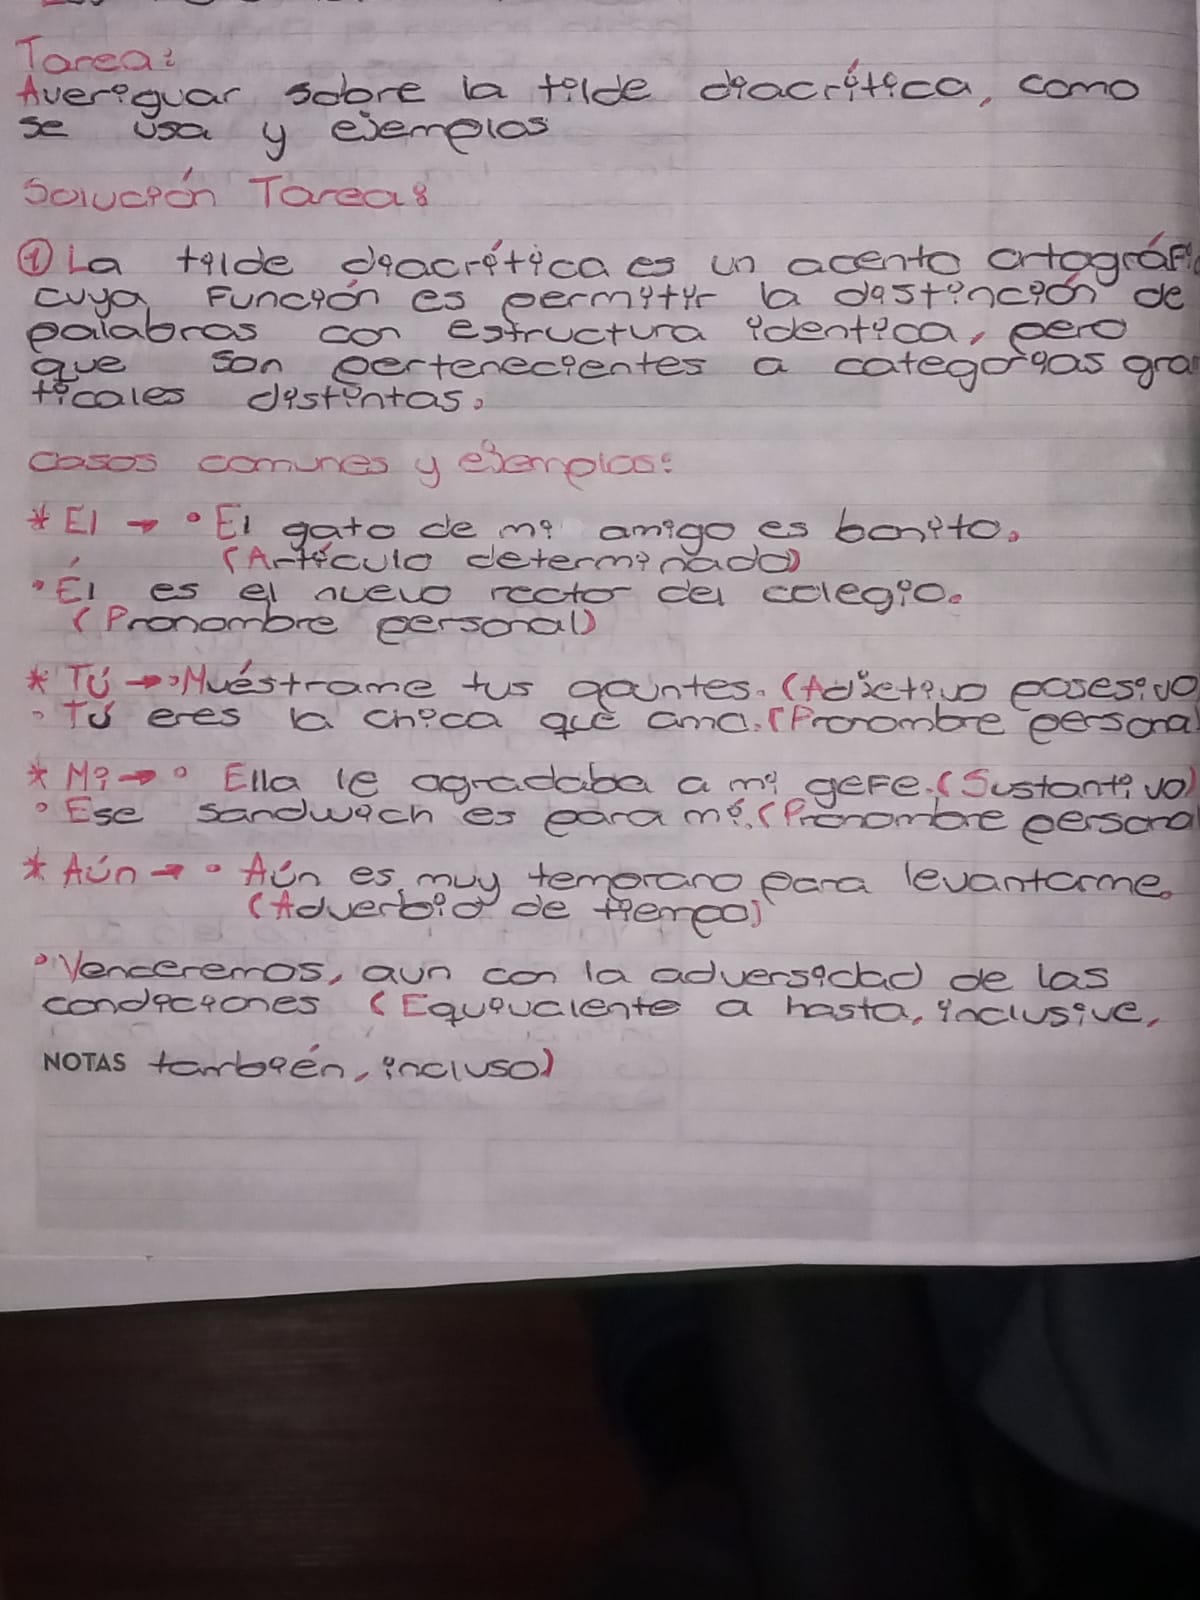 Tarea:
Averiguar sobre la tilde diacrítica, como
se usa y ejemplos
Solución Tarea:
① La tilde diacrítica es un acento ortográfi
cuya Función es permitir la distinción de
palabras con estructura identica, pero
que son pertenecientes a categorías gra
ticales distintas.
Casos comunes y ejemplos:
* El → • El gato de mi amigo es bonito.
(Artículo determinado)
• Él es el nuevo rector del colegio.
(Pronombre personal)
* Tú → • Muéstrame tus apuntes. (Adjetivo posesivo
• Tú eres la chica que ama. (Pronombre persona
* Mi → • Ella le agradaba a mi gefe. (Sustantivo)
• Ese sandwich es para mí. (Pronombre persona
* Aún → • Aún es muy temprano para levantarme.
(Adverbio de tiempo)
• Venceremos, aun con la adversidad de las
condiciones (Equivalente a hasta, inclusive,
NOTAS también, incluso)